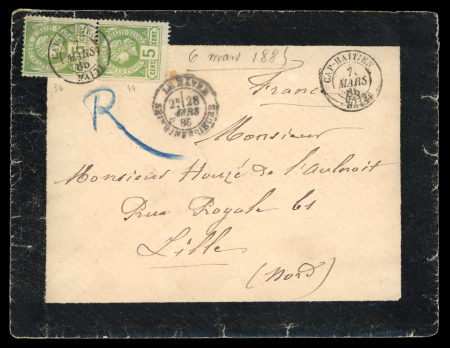 6 mars 1885
CAP-HAÏTIEN
7
MARS
85
HAITI
CAP-HAÏTIEN
MARS
85
HAITI
5
LE HAVRE
28
MARS
85
SEINE-INFÉRIEURE
34
44
R
France
Monsieur
Monsieur Houzé de l'aulnoit
Rue Royale 61
Lille
(Nord)